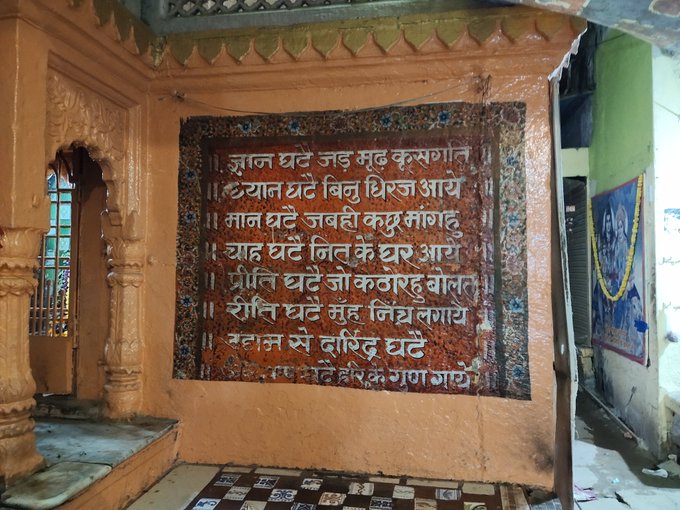 ।। ज्ञान घटै जड़ मूढ़ कुसंगति ।।
।। ध्यान घटै बिनु धिरज आये ।।
।। मान घटै जबही कछु मांगहु ।।
।। चाह घटै नित के घर आये ।।
।। प्रीति घटै जो कठोरहु बोलत ।।
।। रीति घटै मुँह निच लगाये ।।
।। से दारिद्र घटै
घटै हरि के गुण गाये